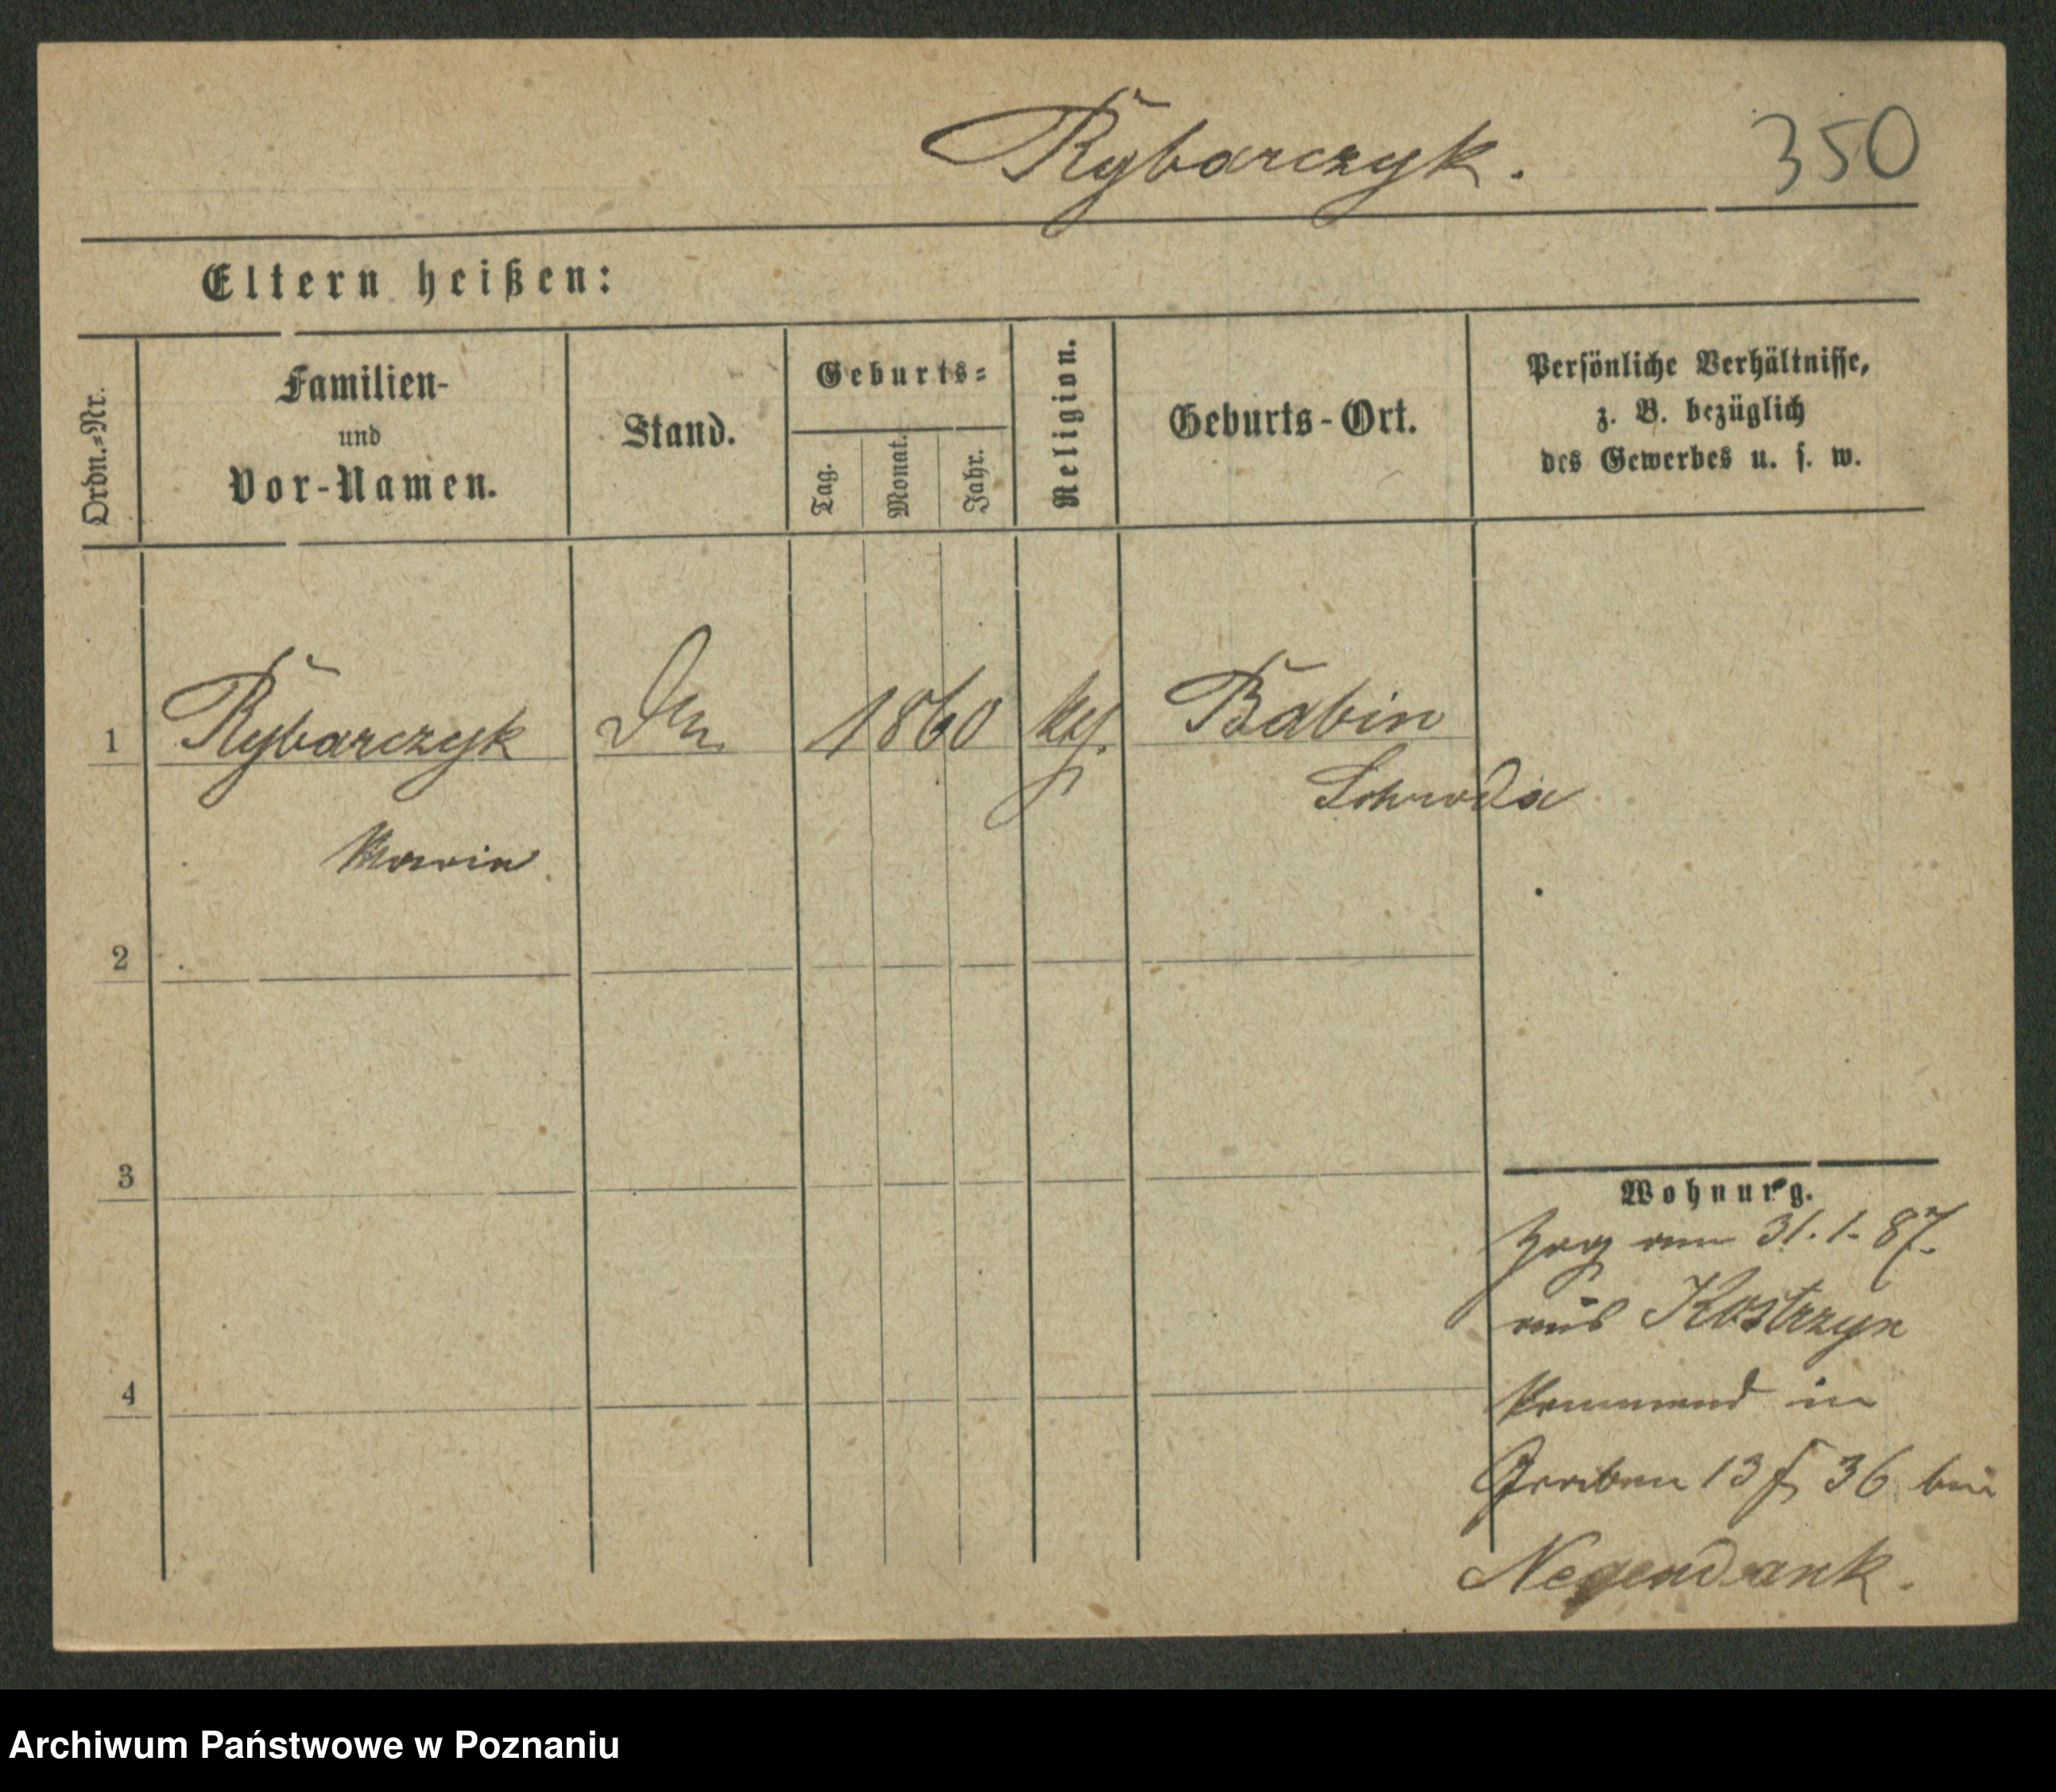 Rybarczyk. 350
Eltern heißen:
Ordn.=Nr.
Familien-
und
Vor-Namen.
Stand.
Geburts=
Tag.
Monat.
Jahr.
Religion.
Geburts-Ort.
Persönliche Verhältnisse,
z. B. bezüglich
des Gewerbes u. s. w.
1 Rybarczyk 1860 Babin
Schroda
2
3
4
Wohnung.
Zog am 31.1.87.
aus Kostrzyn
kommend in
Graben 13 36 bei
Negendank.
Archiwum Państwowe w Poznaniu